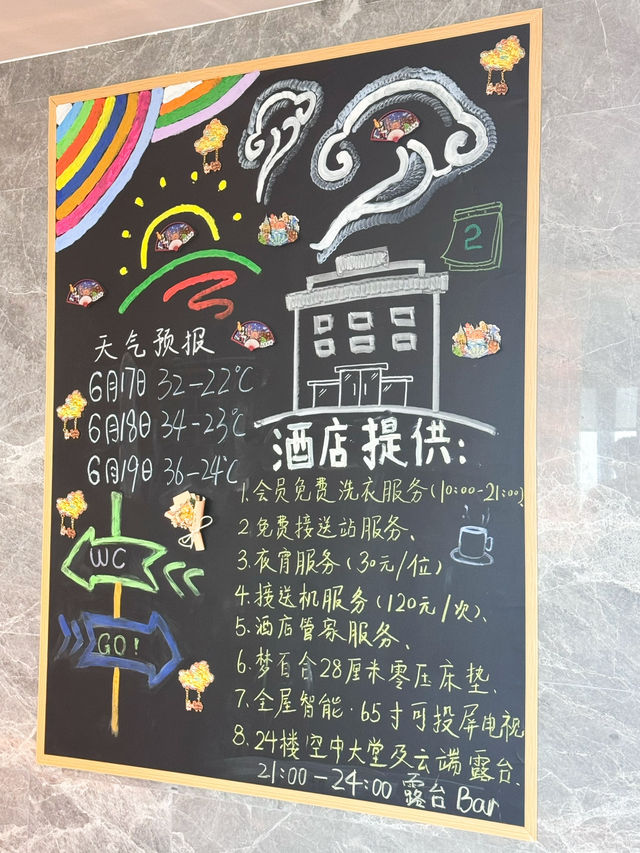 2
天气预报
6月17日 32-22℃
6月18日 34-23℃
6月19日 36-24℃
WC
GO!
酒店提供:
1.会员免费洗衣服务(10:00-21:00)
2.免费接送站服务、
3.夜宵服务(30元/位)
4.接送机服务(120元/次)、
5.酒店管家服务、
6.梦百合28厘米零压床垫、
7.全屋智能·65寸可投屏电视
8.24楼空中大堂及云端露台、
21:00-24:00 露台 Bar